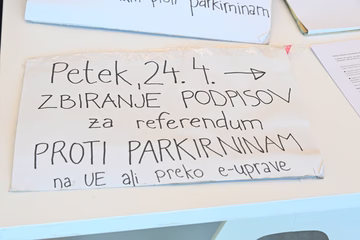 proti parkirninam
Petek, 24. 4. →
ZBIRANJE PODPISOV
za referendum
PROTI PARKIRNINAM
na UE ali preko e-uprave